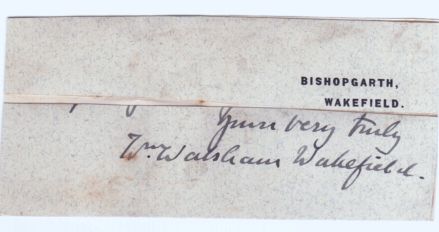 BISHOPGARTH,
WAKEFIELD.
Yours very truly
Wm. Walsham Wakefield.